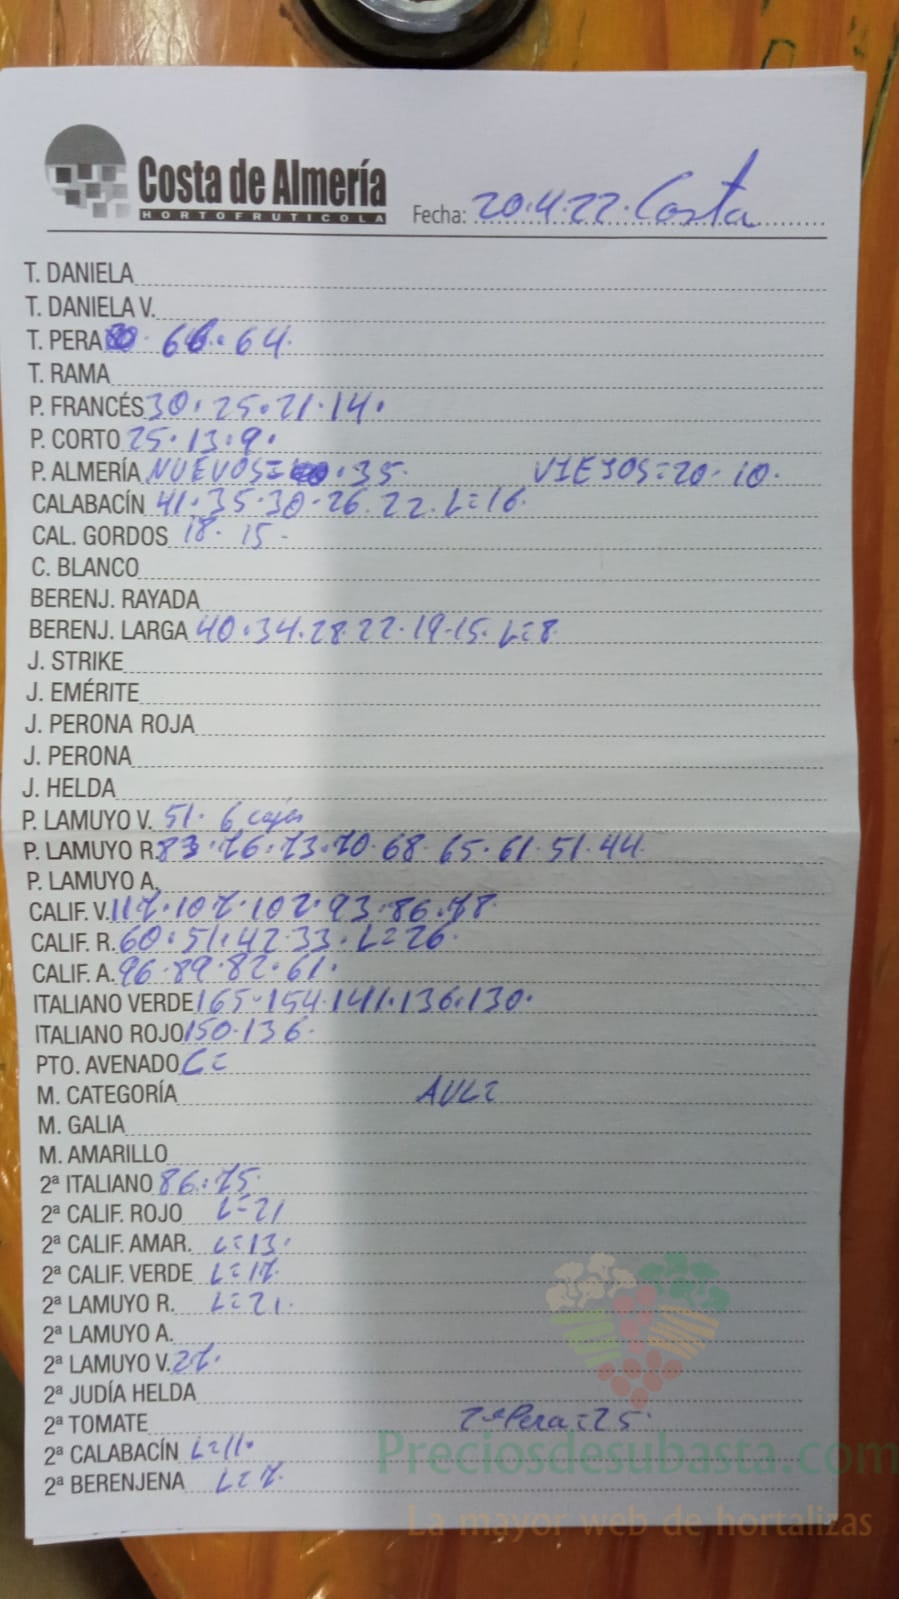 Costa de Almería
HORTOFRUTICOLA
Fecha: 20.4.22. Costa
T. DANIELA
T. DANIELA V.
T. PERA 66.64.
T. RAMA
P. FRANCÉS 30.25.21.14.
P. CORTO 25.13.9.
P. ALMERÍA NUEVOS= .35. VIEJOS=20.10.
CALABACÍN 41.35.30.26.22.L=16.
CAL. GORDOS 18.15-
C. BLANCO
BERENJ. RAYADA
BERENJ. LARGA 40.34.28.22.19.15.L=8.
J. STRIKE
J. EMÉRITE
J. PERONA ROJA
J. PERONA
J. HELDA
P. LAMUYO V. 51. 6 cajas
P. LAMUYO R. 83.76.73.70.68.65.61.51.44.
P. LAMUYO A.
CALIF. V. 117.107.102.93.86.78
CALIF. R. 60.51.42.33.L=26.
CALIF. A. 96.89.82.61.
ITALIANO VERDE 165.154.141.136.130.
ITALIANO ROJO 150.136.
PTO. AVENADO C=
M. CATEGORÍA AVL=
M. GALIA
M. AMARILLO
2ª ITALIANO 86.75.
2ª CALIF. ROJO L=21
2ª CALIF. AMAR. L=13.
2ª CALIF. VERDE L=17.
2ª LAMUYO R. L=21.
2ª LAMUYO A.
2ª LAMUYO V. 27.
2ª JUDÍA HELDA
2ª TOMATE 2ª Pera=25.
2ª CALABACÍN L=11.
2ª BERENJENA L=7.
Preciosdesubasta.com
La mayor web de hortalizas